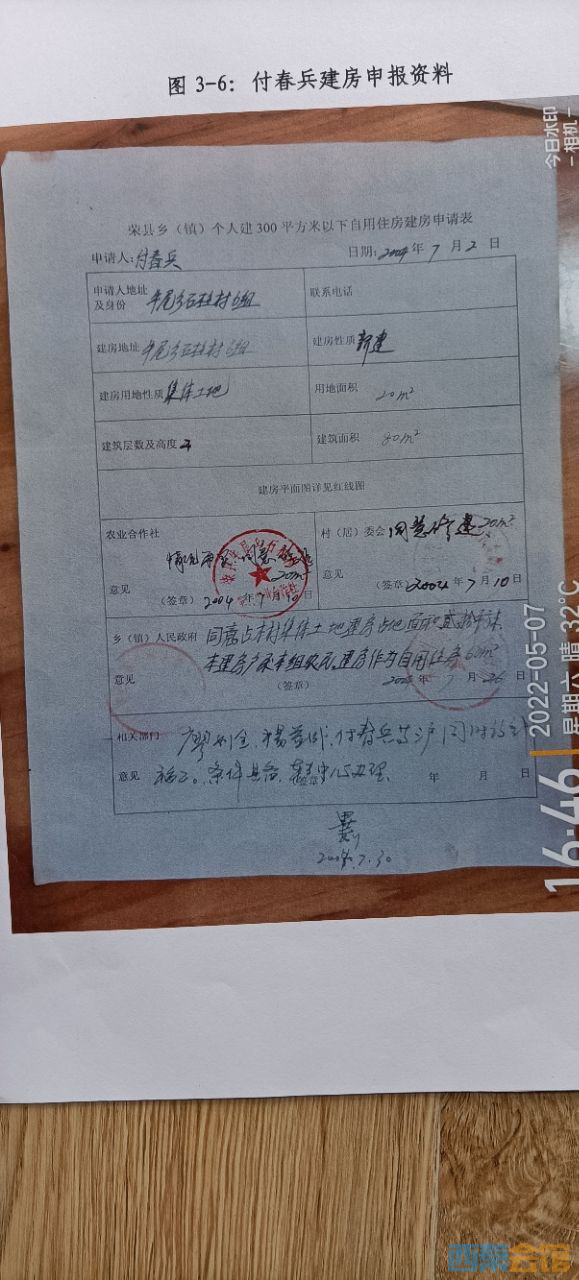 图 3-6：付春兵建房申报资料
荣县乡（镇）个人建300平方米以下自用住房建房申请表
申请人：付春兵 日期：2004年7月2日
申请人地址及身份 石柱村6组 联系电话
建房地址 石柱村6组 建房性质 新建
建房用地性质 集体土地 用地面积 20m²
建筑层数及高度 建筑面积 80m²
建房平面图详见红线图
农业合作社 情况 同意 20m²
意见
（签章）2004年7月10日
村（居）委会 同意修建20m²
意见
（签章）2004年7月10日
乡（镇）人民政府 同意占本村集体土地建房占地面积贰拾平米
本建房户系本组农民，建房作为自用住房60m²
意见
（签章） 7月26日
相关部门 付春兵 同时
意见 条件具备 办理 年 月 日
2004.7.30
今日水印
-相机-
16:46
2022-05-07
星期六 晴 32℃
西秦会馆